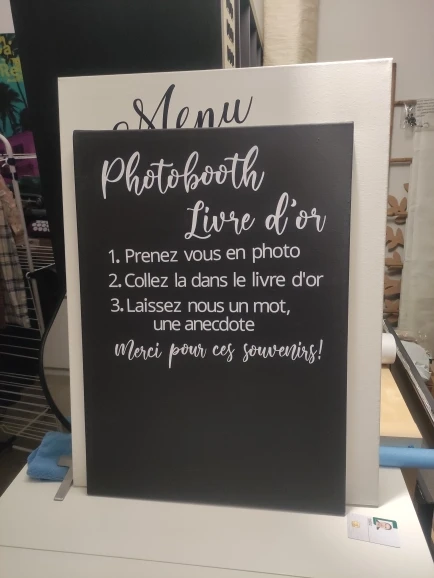 Menu
Photobooth
Livre d'or
1. Prenez vous en photo
2. Collez la dans le livre d'or
3. Laissez nous un mot,
une anecdote
Merci pour ces souvenirs!